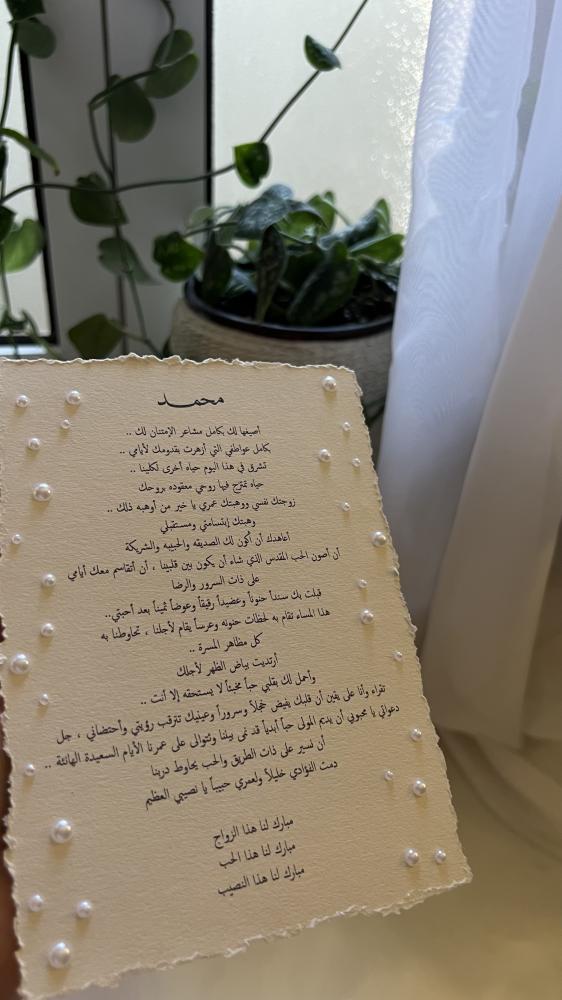 محمد
أصيغها لك بكامل مشاعر الإمتنان لك ..
بكامل عواطفي التي أزهرت بقدومك لأيامي ..
تشرق في هذا اليوم حياه أخرى لكلينا ..
حياه تمتزج فيها روحي معقوده بروحك
زوجتك نفسي ووهبتك عمري يا خير من أوهبه ذلك ..
وهبتك إبتسامتي ومستقبلي
أعاهدك أن أكون لك الصديقه والحبيبه والشريكة
أن أصون الحب المقدس الذي شاء أن يكون بين قلبينا ، أن أتقاسم معك أيامي
على ذات السرور والرضا
قبلت بك سنداً حنوناً وعضيداً رفيقاً وعوضاً ثميناً بعد أحبتي..
هذا المساء تقام به لحظات حنونه وعرساً يقام لأجلنا ، تحاوطنا به
كل مظاهر المسرة ..
أرتديت بياض الطهر لأجلك
وأحمل لك بقلبي حباً مخبئاً لا يستحقه إلا أنت ..
تقراء وأنا على يقين أن قلبك يفيض خجلاً وسروراً وعينيك تترقب رؤيتي وأحتضاني ، جل
دعواتي يا محبوبي أن يديم المولى حباً أبدياً قد نمى بيننا وتتوالى على عمرنا الأيام السعيدة الهانئة ..
أن نسير على ذات الطريق والحب يحاوط دربنا
دمت لفؤادي خليلاً ولعمري حبيباً يا نصيبي العظيم
مبارك لنا هذا الزواج
مبارك لنا هذا الحب
مبارك لنا هذا النصيب